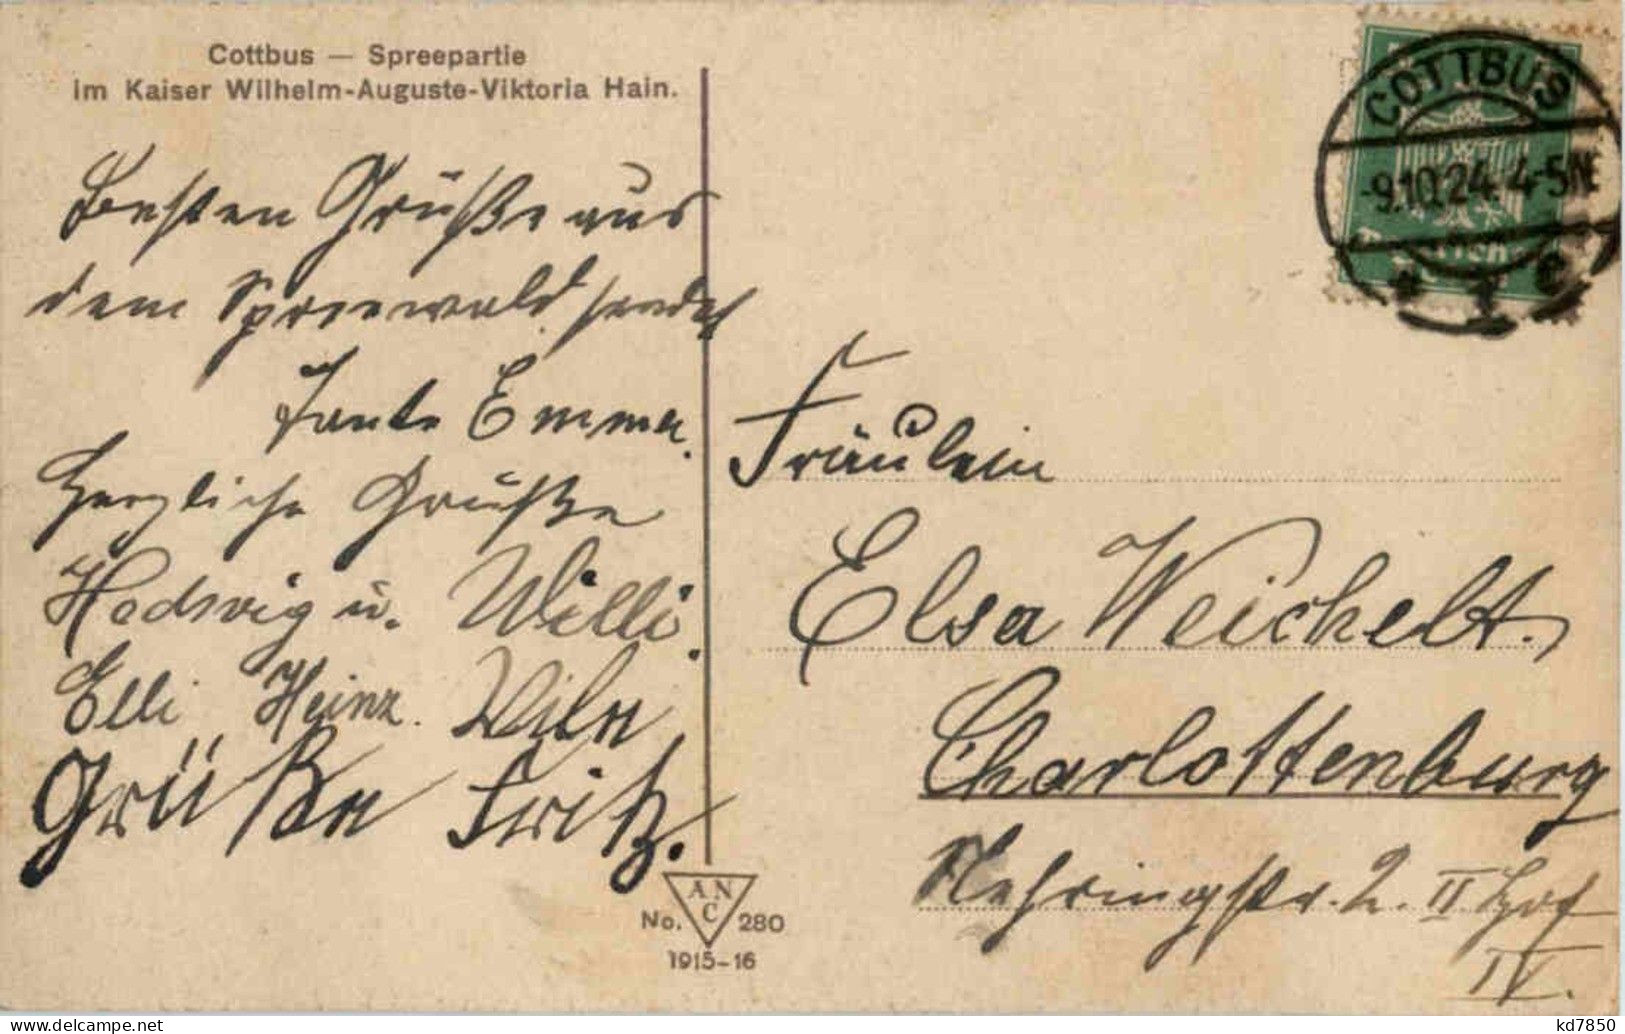 Cottbus — Spreepartie
im Kaiser Wilhelm-Auguste-Viktoria Hain.
Besten Grüße aus
dem Spreewald sendet
Tante Emma.
Herzliche Grüße
Hedwig u. Willi.
Elli Heinz.
Grüße Fritz.
No. ANC 280
1915-16
COTTBUS
-9.10.24. 4-5N
Fräulein
Elsa Weichelt.
Charlottenburg
Nehringstr. 2. II Hof
IV.
kd7850